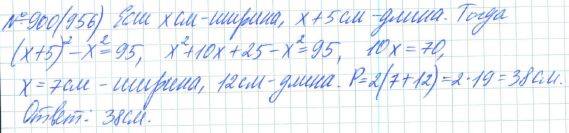 №900(956) Если x см-ширина, x+5 см-длина. Тогда
(x+5)²-x²=95, x²+10x+25-x²=95, 10x=70,
x=7см-ширина, 12см-длина. P=2(7+12)=2·19=38см.
Ответ: 38см.